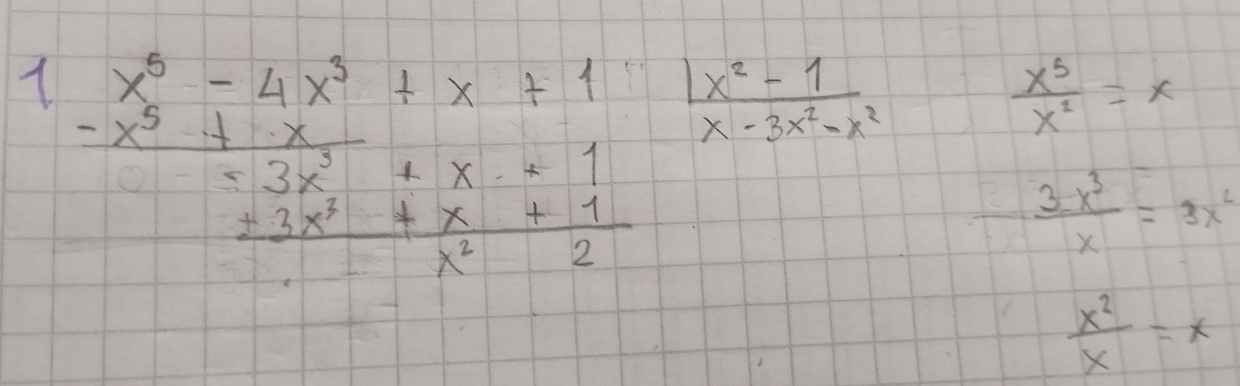 1 x⁵ - 4x³ + x + 1 | x² - 1
- x⁵ + x x - 3x² - x²
- 3x³ + x + 1
+ 3x³ + x + 1
x² 2
x⁵/x² = x
3x³/x = 3x²
x²/x = x